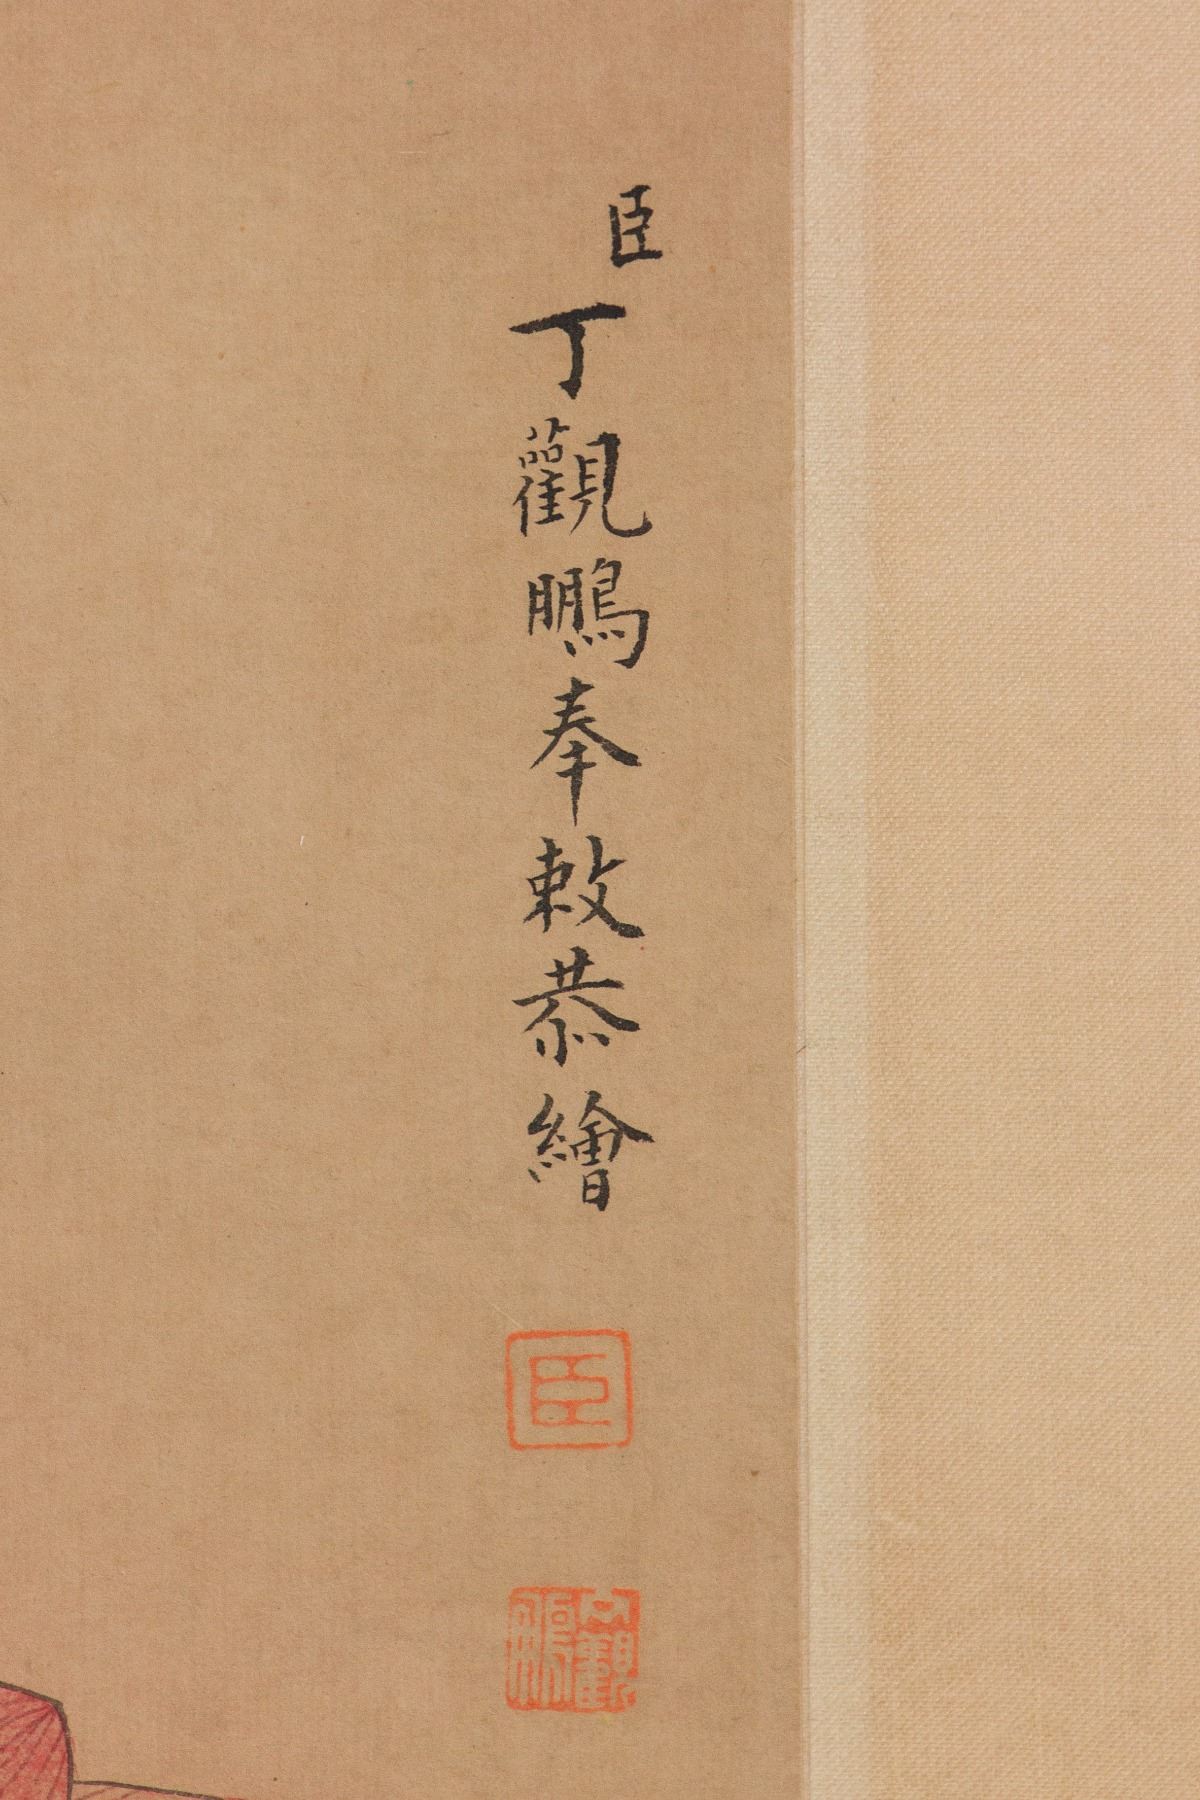 臣丁觀鵬奉敕恭繪
臣
丁觀鵬